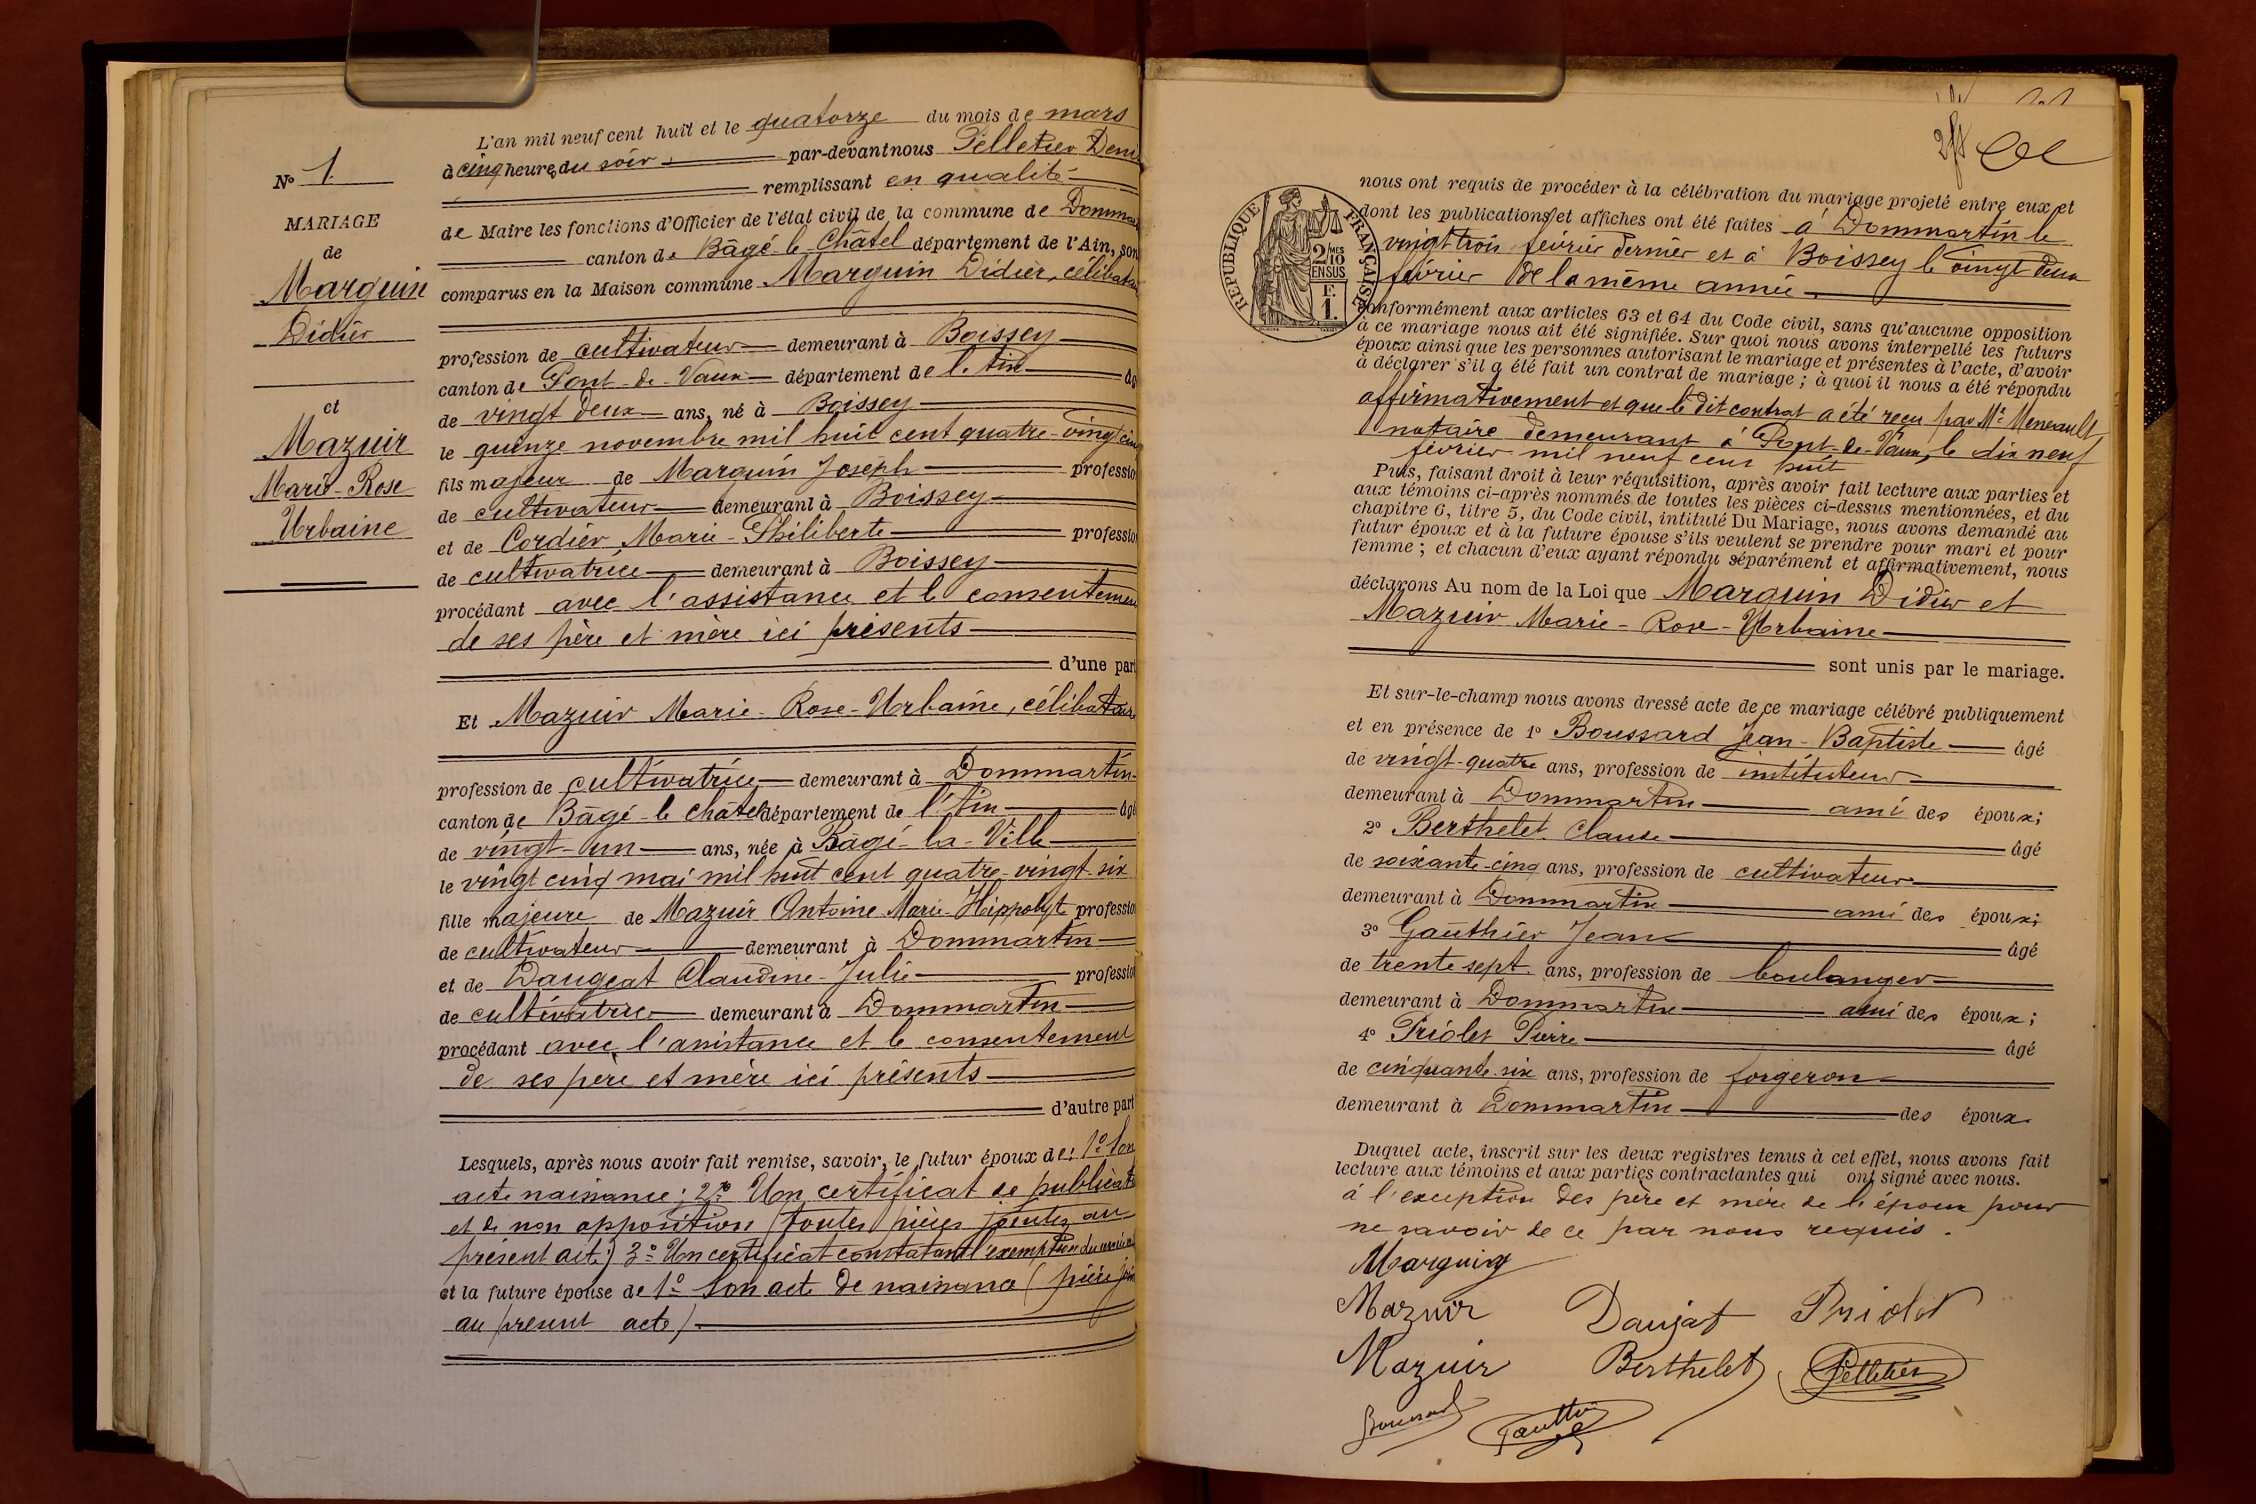 L'an mil neuf cent huit et le quatorze du mois de mars
à cinq heures du soir par-devant nous Pelletier Deni
remplissant en qualité
de Maire les fonctions d'Officier de l'état civil de la commune de Domma
canton de Bâgé-le-Châtel département de l'Ain, son
comparus en la Maison commune Marguin Didier, célibatai
N° 1
MARIAGE
de
Marguin
Didier
et
Mazuir
Marie-Rose
Urbaine
profession de cultivateur demeurant à Boissey
canton de Pont-de-Vaux département de l'Ain âg
de vingt deux ans, né à Boissey
le quinze novembre mil huit cent quatre-vingt cinq
fils majeur de Marguin Joseph professio
de cultivateur demeurant à Boissey
et de Cordier Marie-Philiberte professio
de cultivatrice demeurant à Boissey
procédant avec l'assistance et le consentement
de ses père et mère ici présents
d'une part
Et Mazuir Marie-Rose-Urbaine, célibataire
profession de cultivatrice demeurant à Dommartin
canton de Bâgé-le-Châtel département de l'Ain âgé
de vingt-un ans, née à Bâgé-la-Ville
le vingt cinq mai mil huit cent quatre-vingt-six
fille majeure de Mazuir Antoine Marie-Hippolyte professio
de cultivateur demeurant à Dommartin
et de Daugeat Claudine-Julie professio
de cultivatrice demeurant à Dommartin
procédant avec l'assistance et le consentement
de ses père et mère ici présents
d'autre part
Lesquels, après nous avoir fait remise, savoir, le futur époux de: 1° Son
acte naissance; 2° Un certificat de publicat
et de non opposition (toutes pièces jointes au
présent acte) 3° Un certificat constatant l'exemption du
et la future épouse de 1° Son acte de naissance (pièce join
au présent acte).
REPUBLIQUE FRANÇAISE
2/10 MES
EN SUS
F.
1.
nous ont requis de procéder à la célébration du mariage projeté entre eux et
dont les publications et affiches ont été faites à Dommartin le
vingt trois février dernier et à Boissey le vingt deux
février de la même année
conformément aux articles 63 et 64 du Code civil, sans qu'aucune opposition
à ce mariage nous ait été signifiée. Sur quoi nous avons interpellé les futurs
époux ainsi que les personnes autorisant le mariage et présentes à l'acte, d'avoir
à déclarer s'il a été fait un contrat de mariage; à quoi il nous a été répondu
affirmativement et que le dit contrat a été reçu par Me
notaire demeurant à Pont-de-Vaux, le dix neuf
février mil neuf cent huit
Puis, faisant droit à leur réquisition, après avoir fait lecture aux parties et
aux témoins ci-après nommés de toutes les pièces ci-dessus mentionnées, et du
chapitre 6, titre 5, du Code civil, intitulé Du Mariage, nous avons demandé au
futur époux et à la future épouse s'ils veulent se prendre pour mari et pour
femme; et chacun d'eux ayant répondu séparément et affirmativement, nous
déclarons Au nom de la Loi que Marguin Didier et
Mazuir Marie-Rose-Urbaine
sont unis par le mariage.
Et sur-le-champ nous avons dressé acte de ce mariage célébré publiquement
et en présence de 1° Boussard Jean-Baptiste âgé
de vingt-quatre ans, profession de instituteur
demeurant à Dommartin ami des époux;
2° Berthelet Claude âgé
de soixante-cinq ans, profession de cultivateur
demeurant à Dommartin ami des époux;
3° Gauthier Jean âgé
de trente sept ans, profession de boulanger
demeurant à Dommartin ami des époux;
4° Priolet Pierre âgé
de cinquante-six ans, profession de forgeron
demeurant à Dommartin des époux.
Duquel acte, inscrit sur les deux registres tenus à cet effet, nous avons fait
lecture aux témoins et aux parties contractantes qui ont signé avec nous.
à l'exception des père et mère de l'époux pour
ne savoir de ce par nous requis.
Marguin
Mazuir Daujat Priolet
Mazuir Berthelet Pelletier
Boussard Gauthier